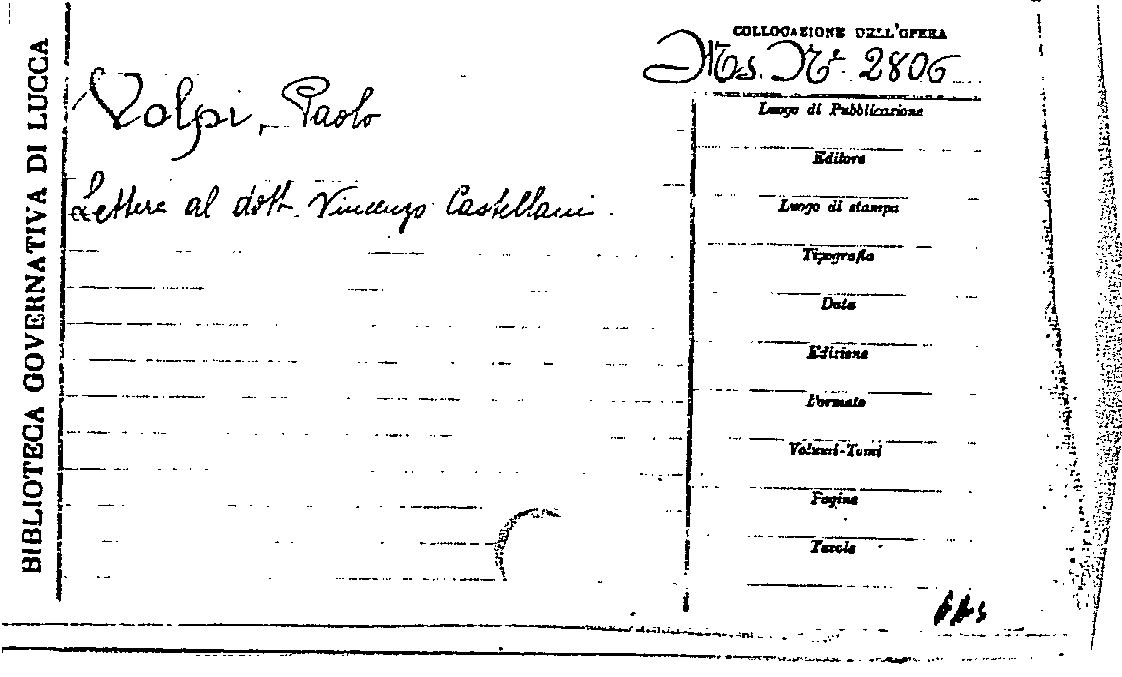 BIBLIOTECA GOVERNATIVA DI LUCCA
COLLOCAZIONE DELL'OPERA
Ms. Nº 2806
Volpi, Paolo
Lettere al dott. Vincenzo Castellani.
Luogo di Pubblicazione
Editore
Luogo di stampa
Tipografia
Data
Edizione
Formato
Volumi-Tomi
Pagine
Tavole